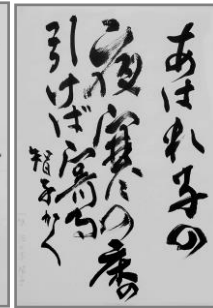 あはれ子の
夜寒の床の
引けば寄る
智子かく